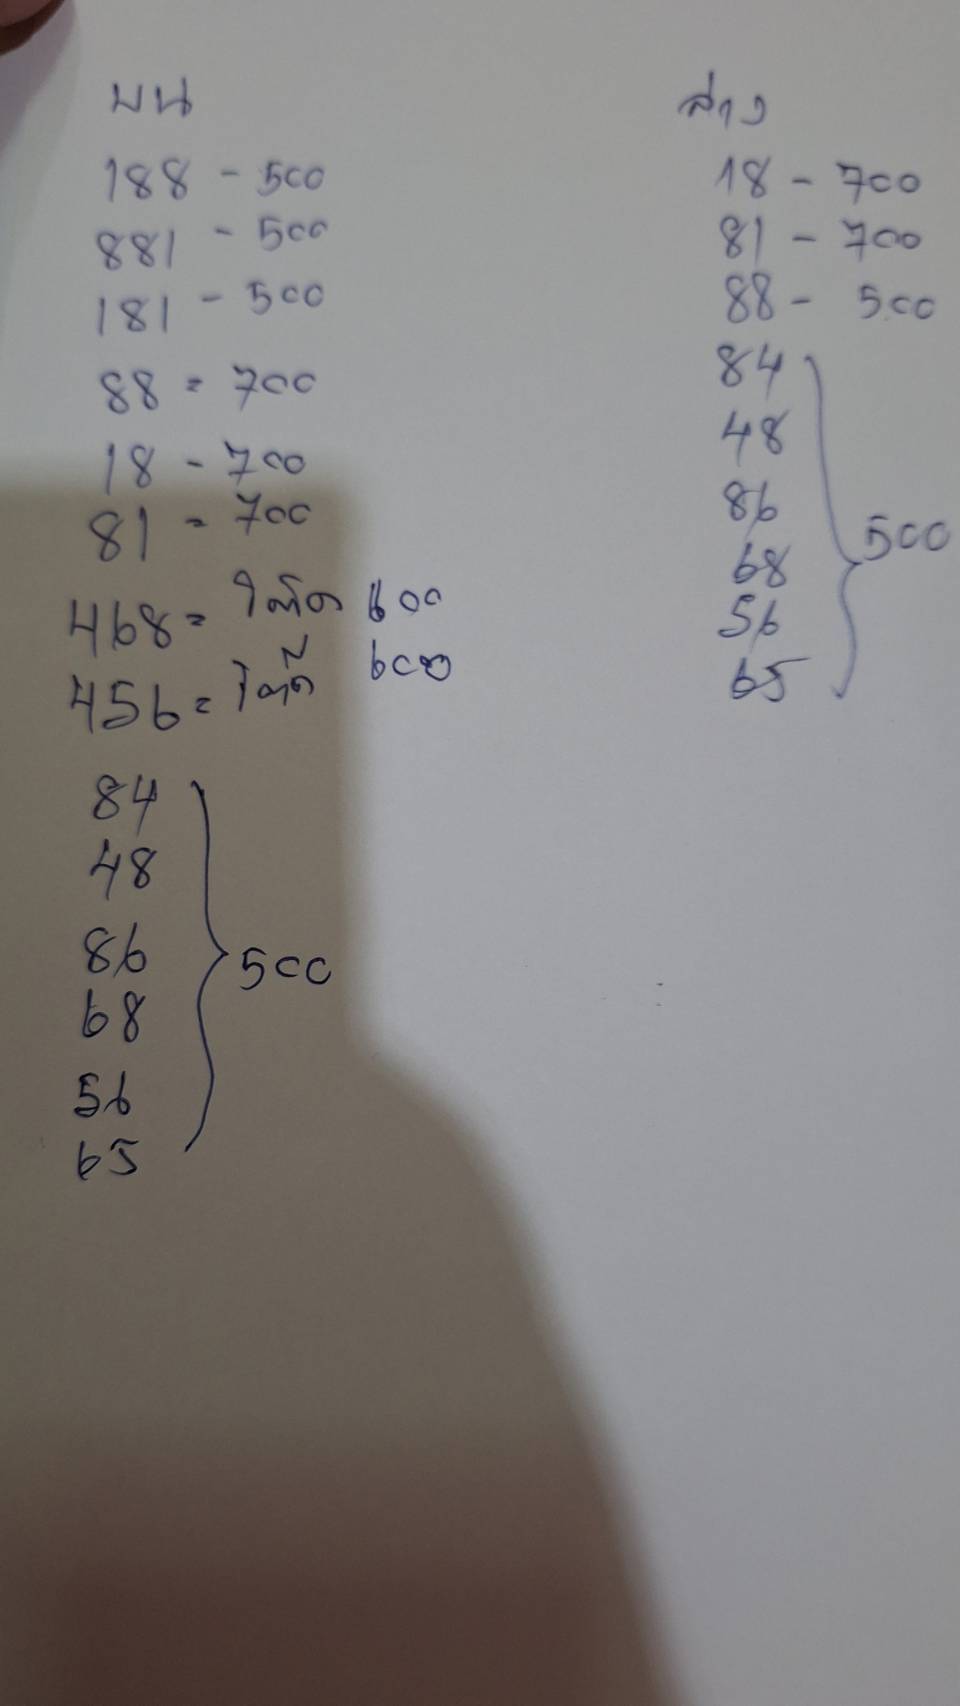 บน
188 - 500
881 - 500
181 - 500
88 = 700
18 - 700
81 = 700
468 = โต๊ด 600
456 = โต๊ด 600
84
48
86
68
56
65
500
ล่าง
18 - 700
81 - 700
88 - 500
84
48
86
68
56
65
500